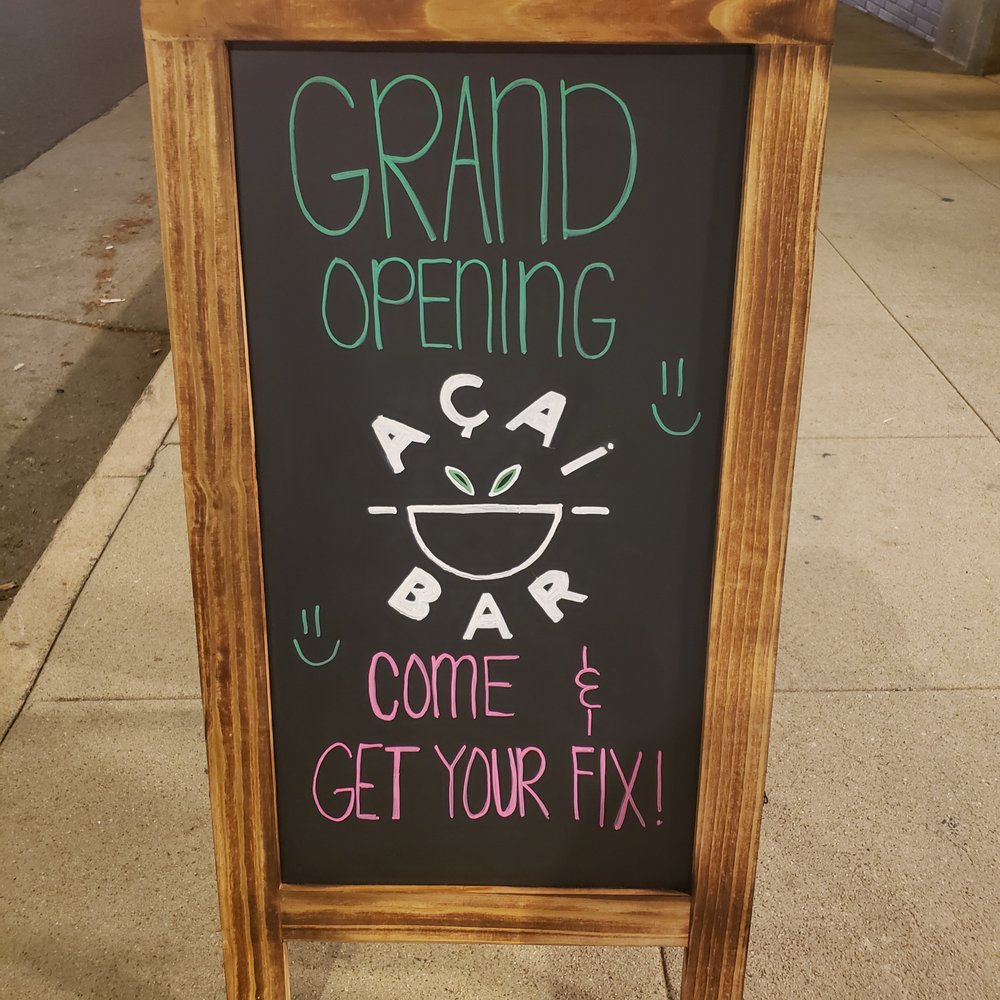 GRAND
OPENING
AÇAI
BAR
COME &
GET YOUR FIX!